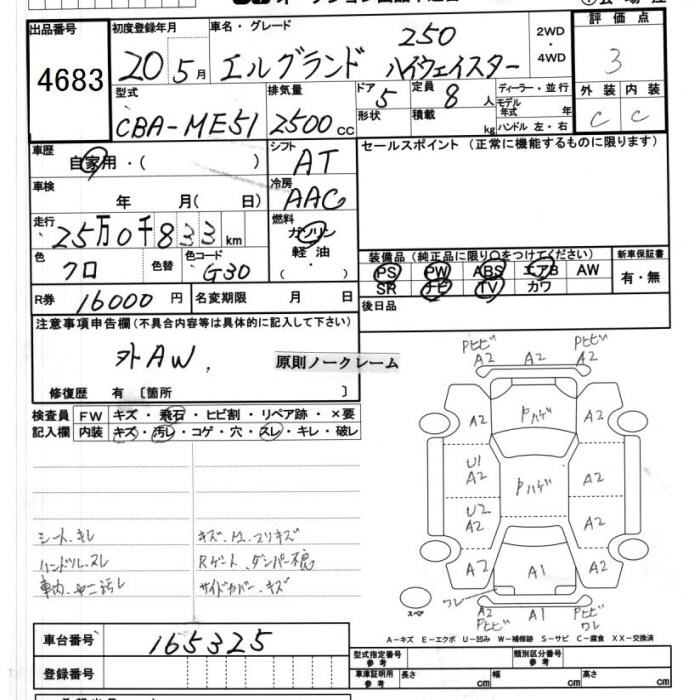 出品番号 初度登録年月 車名・グレード 2WD・4WD 評価点
4683 20 5月 エルグランド 250 ハイウェイスター 3
型式 排気量 ドア 定員 ディーラー・並行 外装 内装
CBA-ME51 2500cc 5 8人 モデル年式 年 C C
形状 積載 kg ハンドル 左・右
車歴 シフト セールスポイント（正常に機能するものに限ります）
自家用・( ) AT
車検 冷房
年 月( 日) AAC
走行 燃料
25万0千833km ガソリン
色 色替 色コード 軽油・
クロ G30 ( )
装備品（純正品に限り○をつけてください） 新車保証書
PS PW ABS エアB AW 有・無
SR ナビ TV カワ
R券 16000円 名変期限 月 日 後日品
注意事項申告欄（不具合内容等は具体的に記入して下さい）
外AW.
原則ノークレーム
修復歴 有〔箇所 〕
検査員 FW キズ・飛石・ヒビ割・リペア跡・×要
記入欄 内装 キズ・汚レ・コゲ・穴・スレ・キレ・破レ
PヒビA2 A2 PヒビA2
A2 Pハゲ A2
U1
A2 Pハゲ A2
U2
A2 A2
A2 A1 A2
ワレ
A2 A1 Pヒビ
Pヒビ ワレ
シート.キレ
ハンドル.スレ Rゲート.ダンパー不良
車内.ヤニ汚レ サイドカバー.キズ
スペア
A－キズ E－エクボ U－凹み W－補修跡 S－サビ C－腐食 XX－交換済
車台番号 165325 型式指定番号 参考 類別区分番号 参考
登録番号 車庫証明用 参考 長さ cm 幅 cm 高さ cm